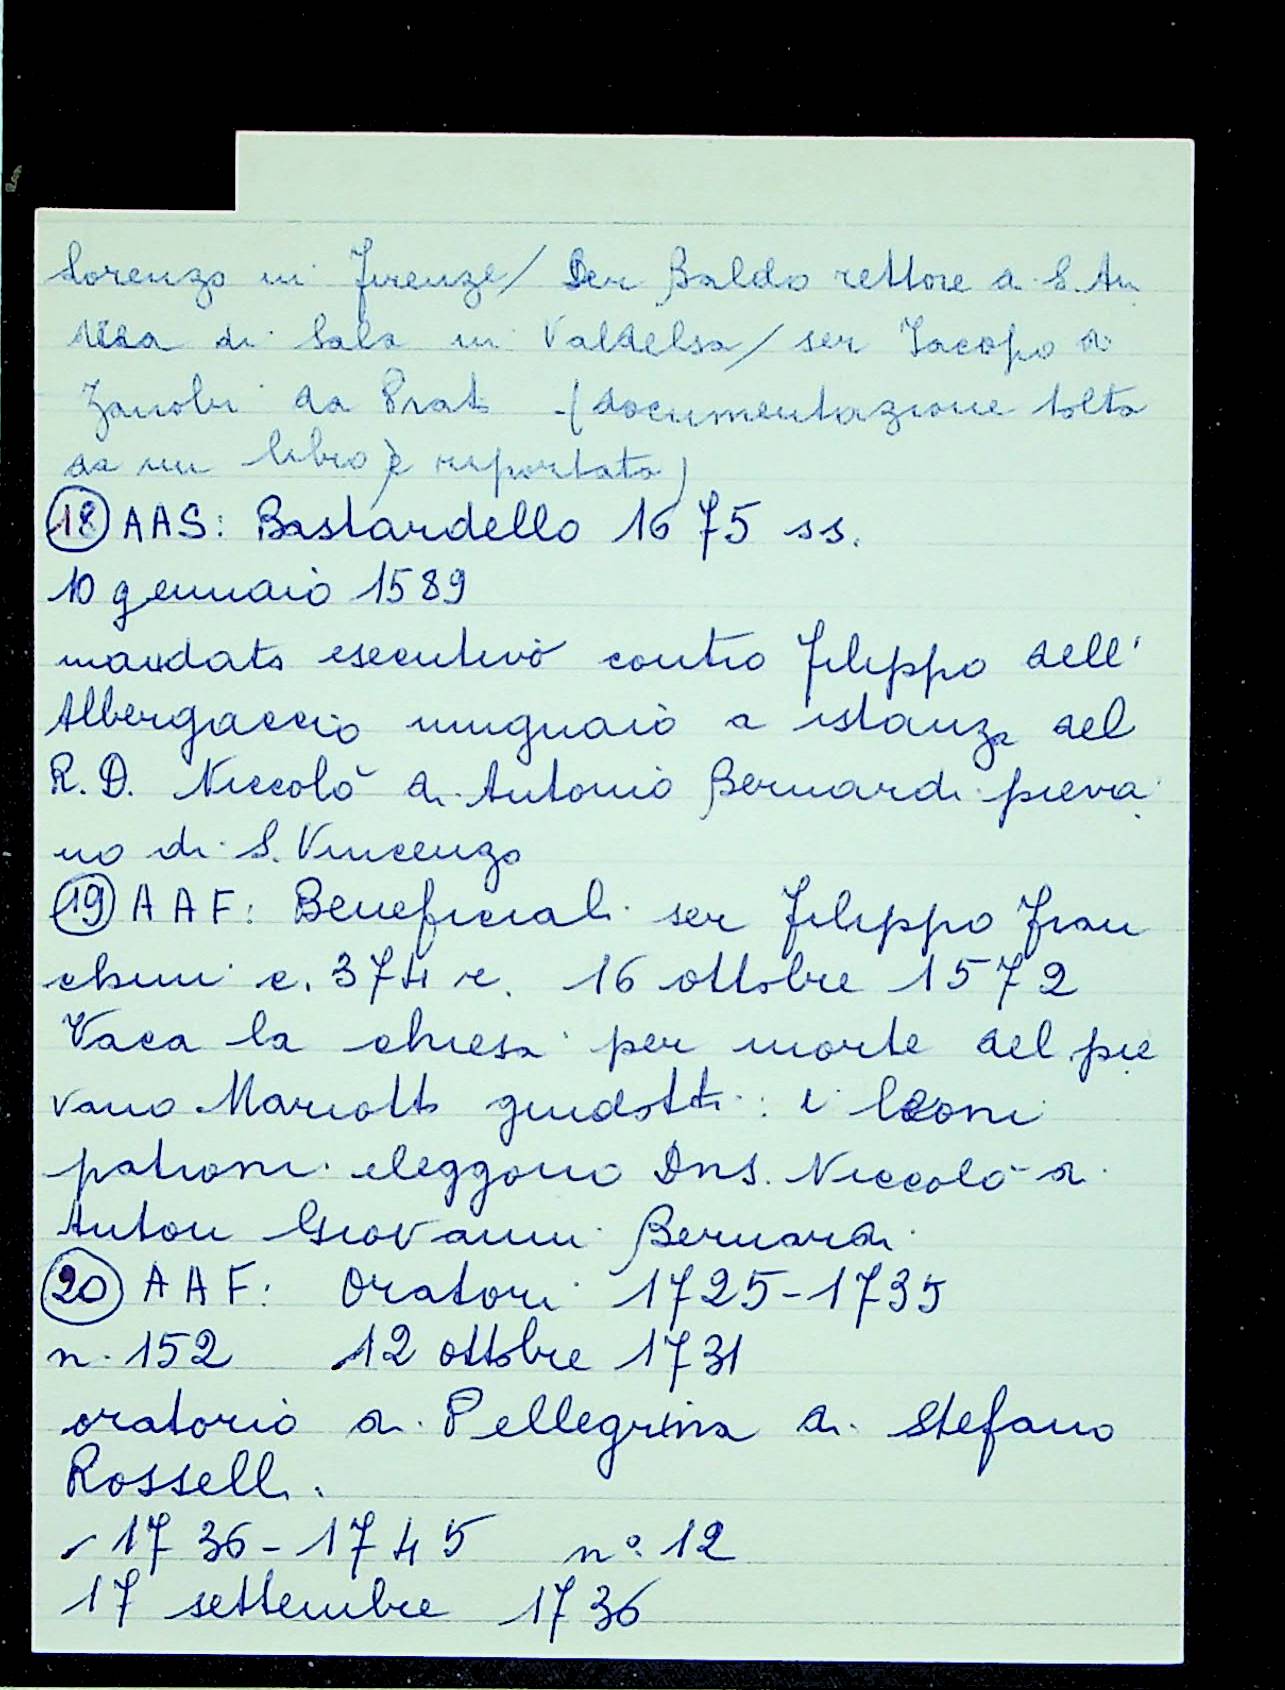 Lorenzo in Firenze/ Ser Baldo rettore di S. An
drea di Sala in Valdelsa/ ser Iacopo di
Zanobi da Prato - (documentazione tolta
da un libro e riportata)
18 AAS: Bastardello 1675 ss.
10 gennaio 1589
mandato esecutivo contro Filippo dell'
Albergaccio mugnaio a istanza del
R.D. Niccolò di Antonio Bernardi pieva
no di S. Vincenzo
19 AAF: Beneficiali ser Filippo Fran
chini c. 374 r. 16 ottobre 1572
Vaca la chiesa per morte del pie
vano Mariotto guidotti: i Leoni
patroni eleggono Dns. Niccolò di
Anton Giovanni Bernardi
20 AAF: Oratori 1725-1735
n. 152 12 ottobre 1731
oratorio di Pellegrina di Stefano
Rosselli.
- 1736-1745 n° 12
17 settembre 1736